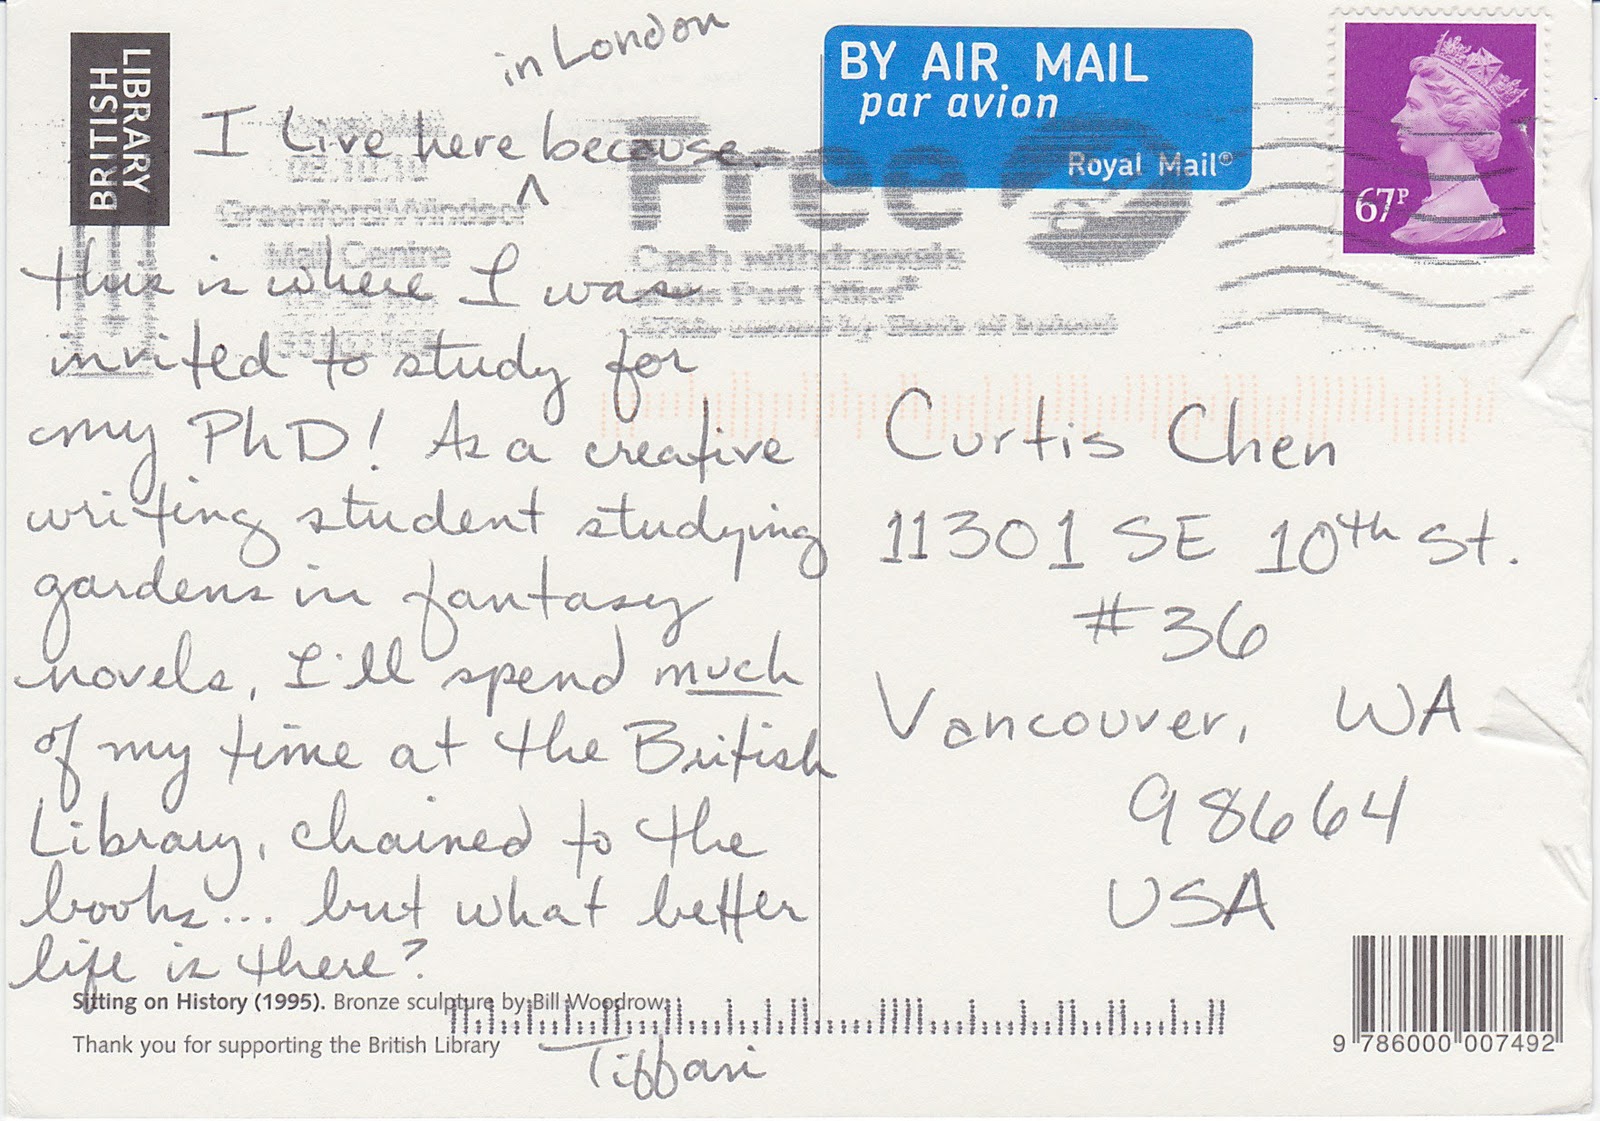 BRITISH
LIBRARY
in London
I live here ^ because
this is where I was
invited to study for
my PhD! As a creative
writing student studying
gardens in fantasy
novels, I'll spend much
of my time at the British
Library, chained to the
books... but what better
life is there?
Tiffani
Sitting on History (1995). Bronze sculpture by Bill Woodrow.
Thank you for supporting the British Library
BY AIR MAIL
par avion
Royal Mail®
67P
Royal Mail
Greenford/Windsor
Mail Centre
Free
Cash withdrawals
Post Office®
Curtis Chen
11301 SE 10th St.
#36
Vancouver, WA
98664
USA
9 786000 007492